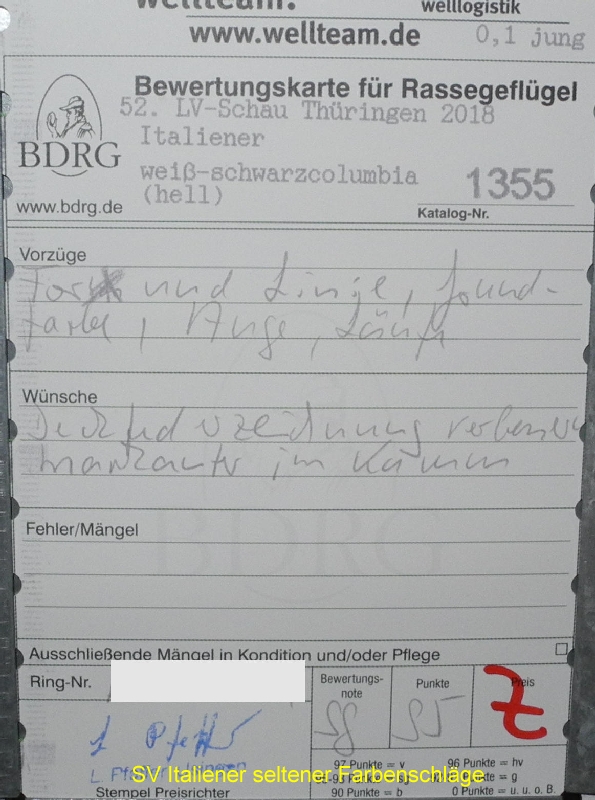 wellteam. welllogistik
www.wellteam.de 0,1 jung
Bewertungskarte für Rassegeflügel
52. LV-Schau Thüringen 2018
Italiener
BDRG
weiß-schwarzcolumbia 1355
(hell)
www.bdrg.de Katalog-Nr.
Vorzüge
Form und Linie, Grund-
farbe, Auge, Läufe
Wünsche
verbessern
markanter im Kamm
Fehler/Mängel
BDRG
Ausschließende Mängel in Kondition und/oder Pflege
Ring-Nr. Bewertungs-
note Punkte Preis
SG 95 Z
L. 
97 Punkte = v 96 Punkte = hv
SV Italiener seltener Farbenschläge
Punkte = g
Stempel Preisrichter 90 Punkte = b 0 Punkte = u. u. o. B.